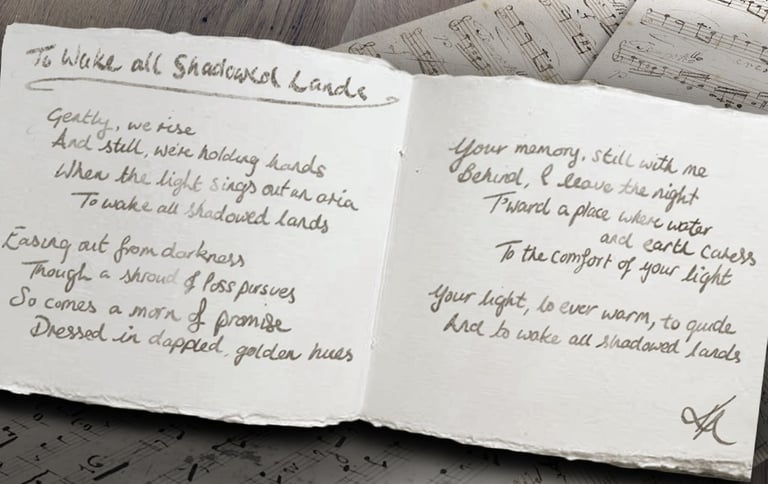 To Wake all Shadowed Lands
Gently, we rise
And still, we're holding hands
When the light sings out an aria
To wake all shadowed lands
Easing out from darkness
Though a shroud of loss pursues
So comes a morn of promise
Dressed in dappled, golden hues
Your memory, still with me
Behind, I leave the night
T'ward a place where water
and earth caress
To the comfort of your light
Your light, to ever warm, to guide
And to wake all shadowed lands